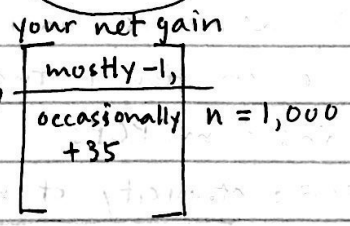 your net gain
mostly -1,
occassionally n = 1,000
+35